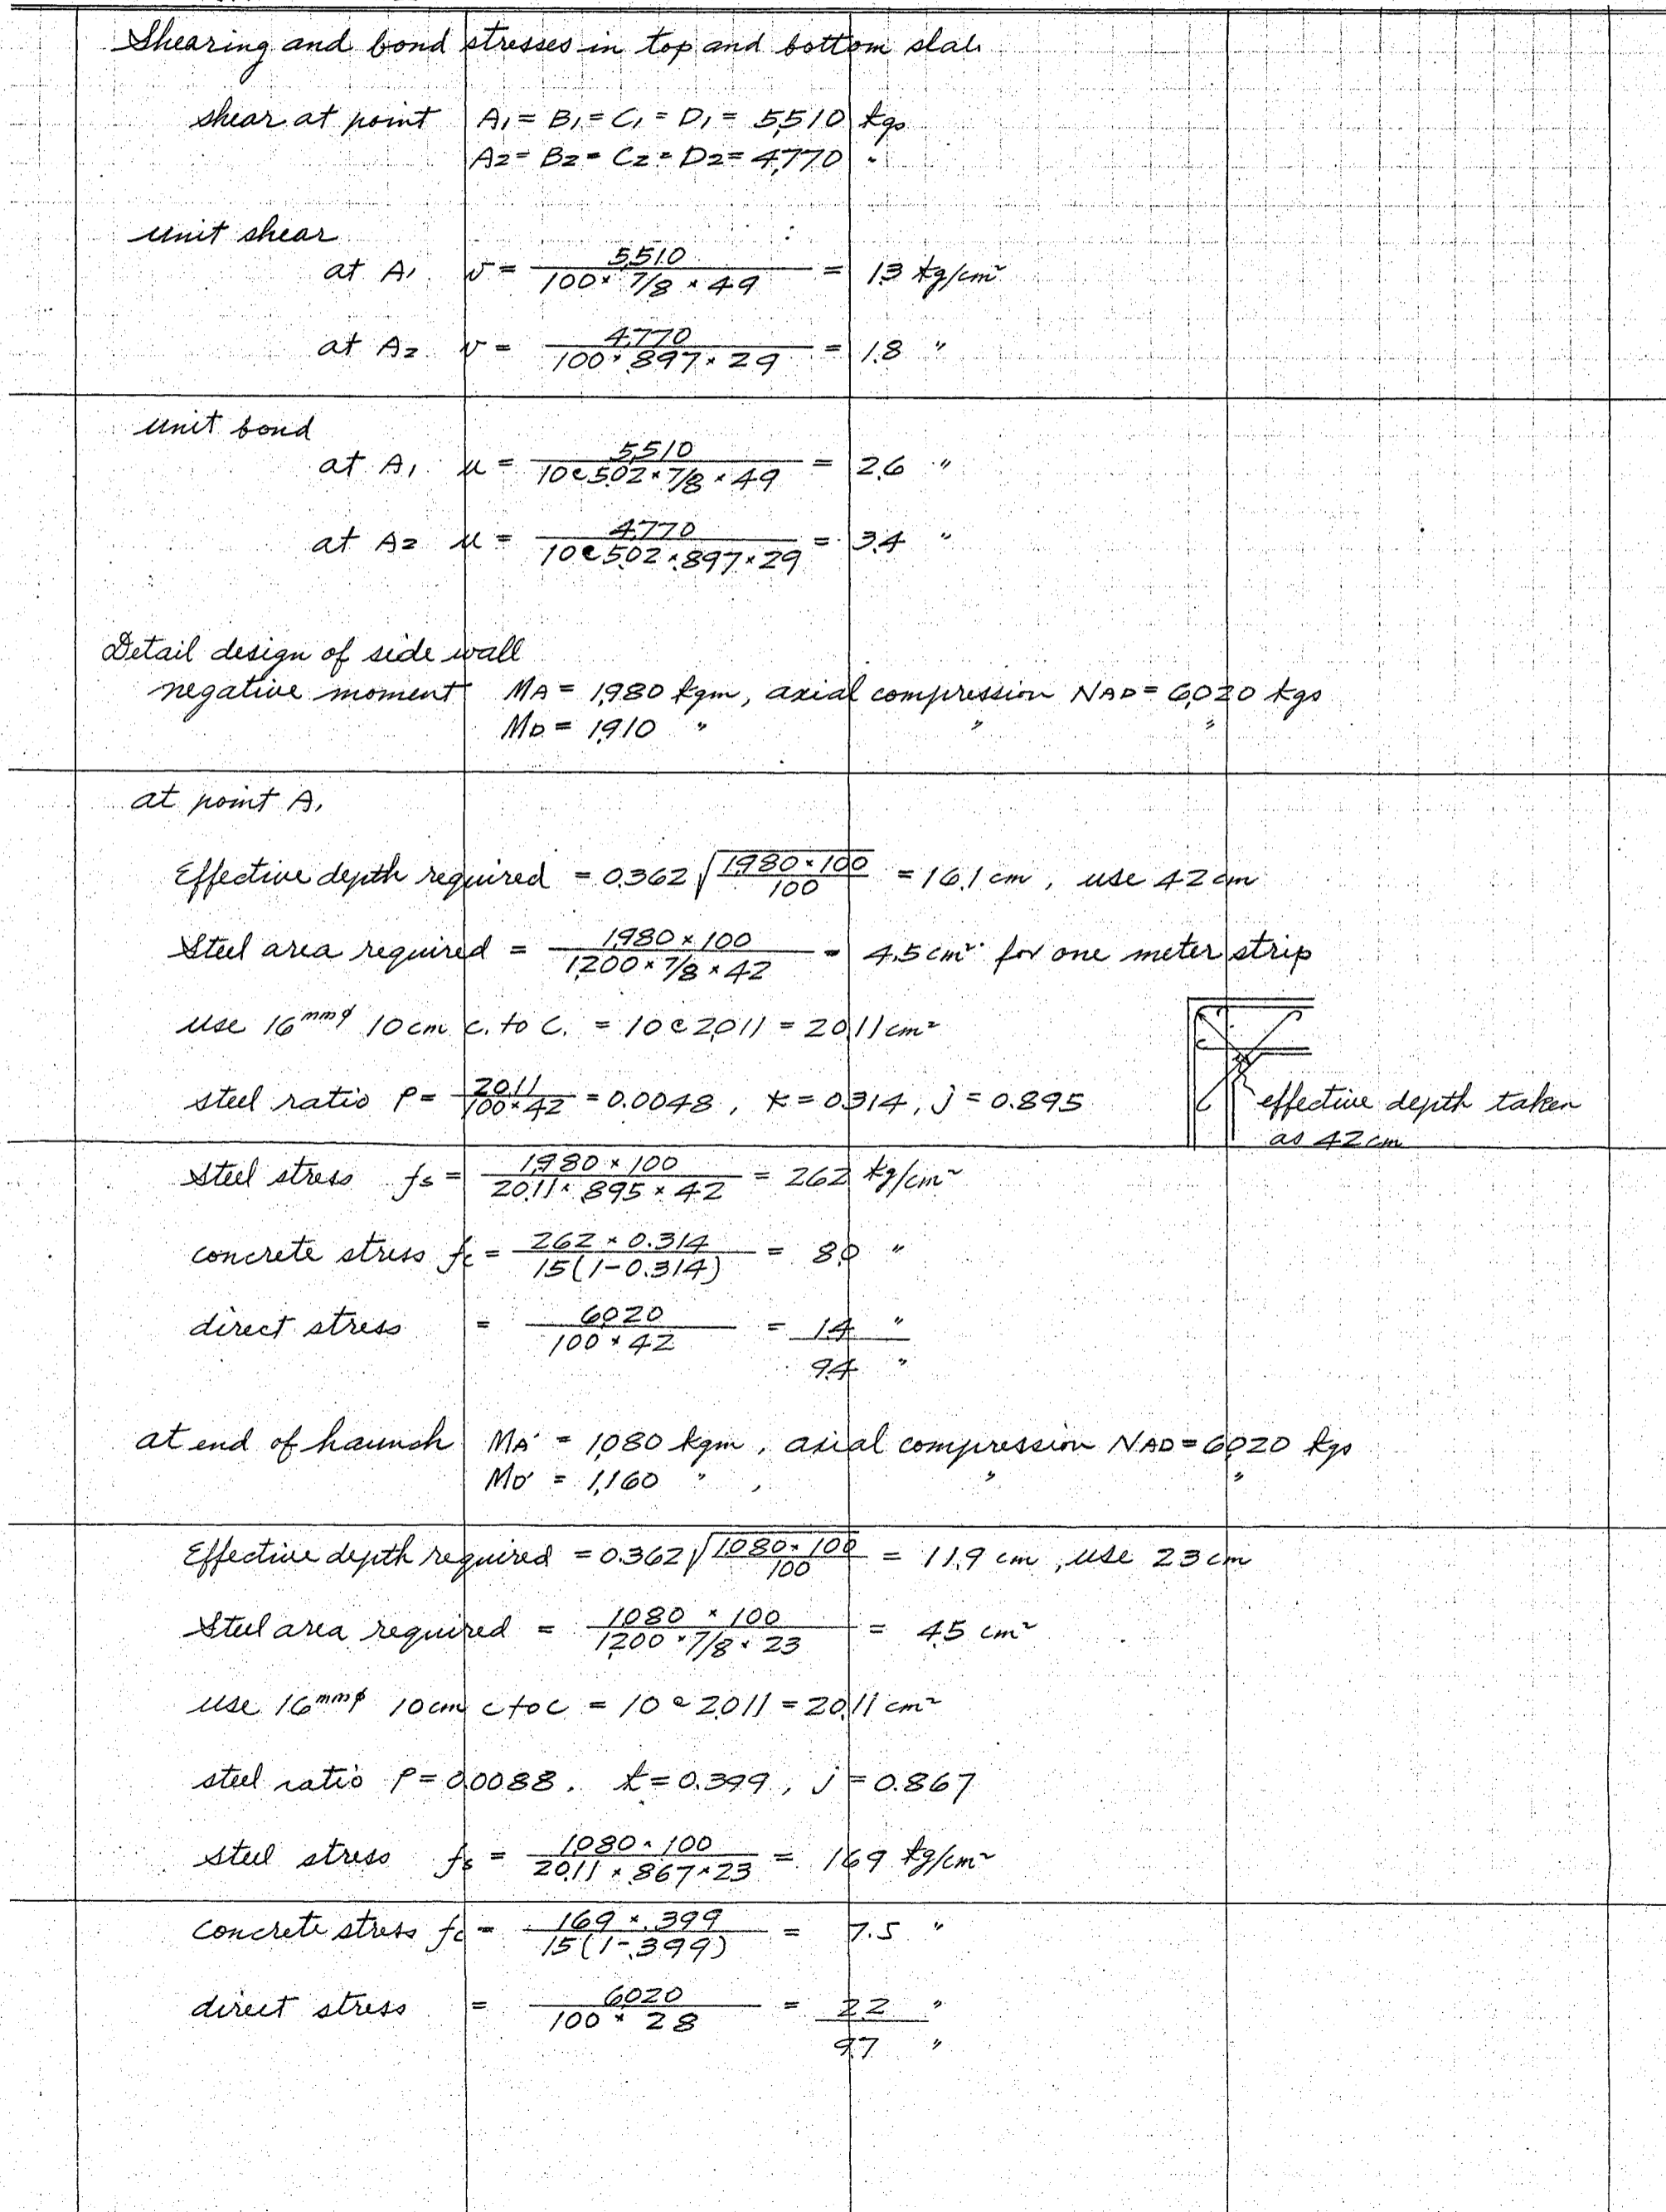 Shearing and bond stresses in top and bottom slab
shear at point A1 = B1 = C1 = D1 = 5,510 kgs
A2 = B2 = C2 = D2 = 4,770 "
unit shear
at A1 v = 5,510 / 100 × 7/8 × 49 = 1.3 kg/cm²
at A2 v = 4,770 / 100 × .897 × 29 = 1.8 "
unit bond
at A1 u = 5,510 / 10@5.02 × 7/8 × 49 = 2.6 "
at A2 u = 4,770 / 10@5.02 × .897 × 29 = 3.4 "
Detail design of side wall
negative moment MA = 1,980 kgm, axial compression NAD = 6,020 kgs
MD = 1,910 " " "
at point A1
Effective depth required = 0.362 √(1,980 × 100 / 100) = 16.1 cm, use 42 cm
Steel area required = 1,980 × 100 / 1,200 × 7/8 × 42 = 4.5 cm² for one meter strip
use 16mmφ 10 cm c. to c. = 10@2.011 = 20.11 cm²
steel ratio P = 20.11 / 100 × 42 = 0.0048, k = 0.314, j = 0.895
effective depth taken
as 42 cm
Steel stress fs = 1,980 × 100 / 20.11 × .895 × 42 = 262 kg/cm²
concrete stress fc = 262 × 0.314 / 15(1-0.314) = 8.0 "
direct stress = 6,020 / 100 × 42 = 1.4 "
9.4 "
at end of haunch MA' = 1,080 kgm, axial compression NAD = 6,020 kgs
MD' = 1,160 " , " "
Effective depth required = 0.362 √(1080 × 100 / 100) = 11.9 cm, use 23 cm
Steel area required = 1,080 × 100 / 1,200 × 7/8 × 23 = 4.5 cm²
use 16mmφ 10 cm c to c = 10@2.011 = 20.11 cm²
steel ratio P = 0.0088, k = 0.399, j = 0.867
steel stress fs = 1,080 × 100 / 20.11 × .867 × 23 = 169 kg/cm²
concrete stress fc = 169 × .399 / 15(1-.399) = 7.5 "
direct stress = 6,020 / 100 × 28 = 2.2 "
9.7 "